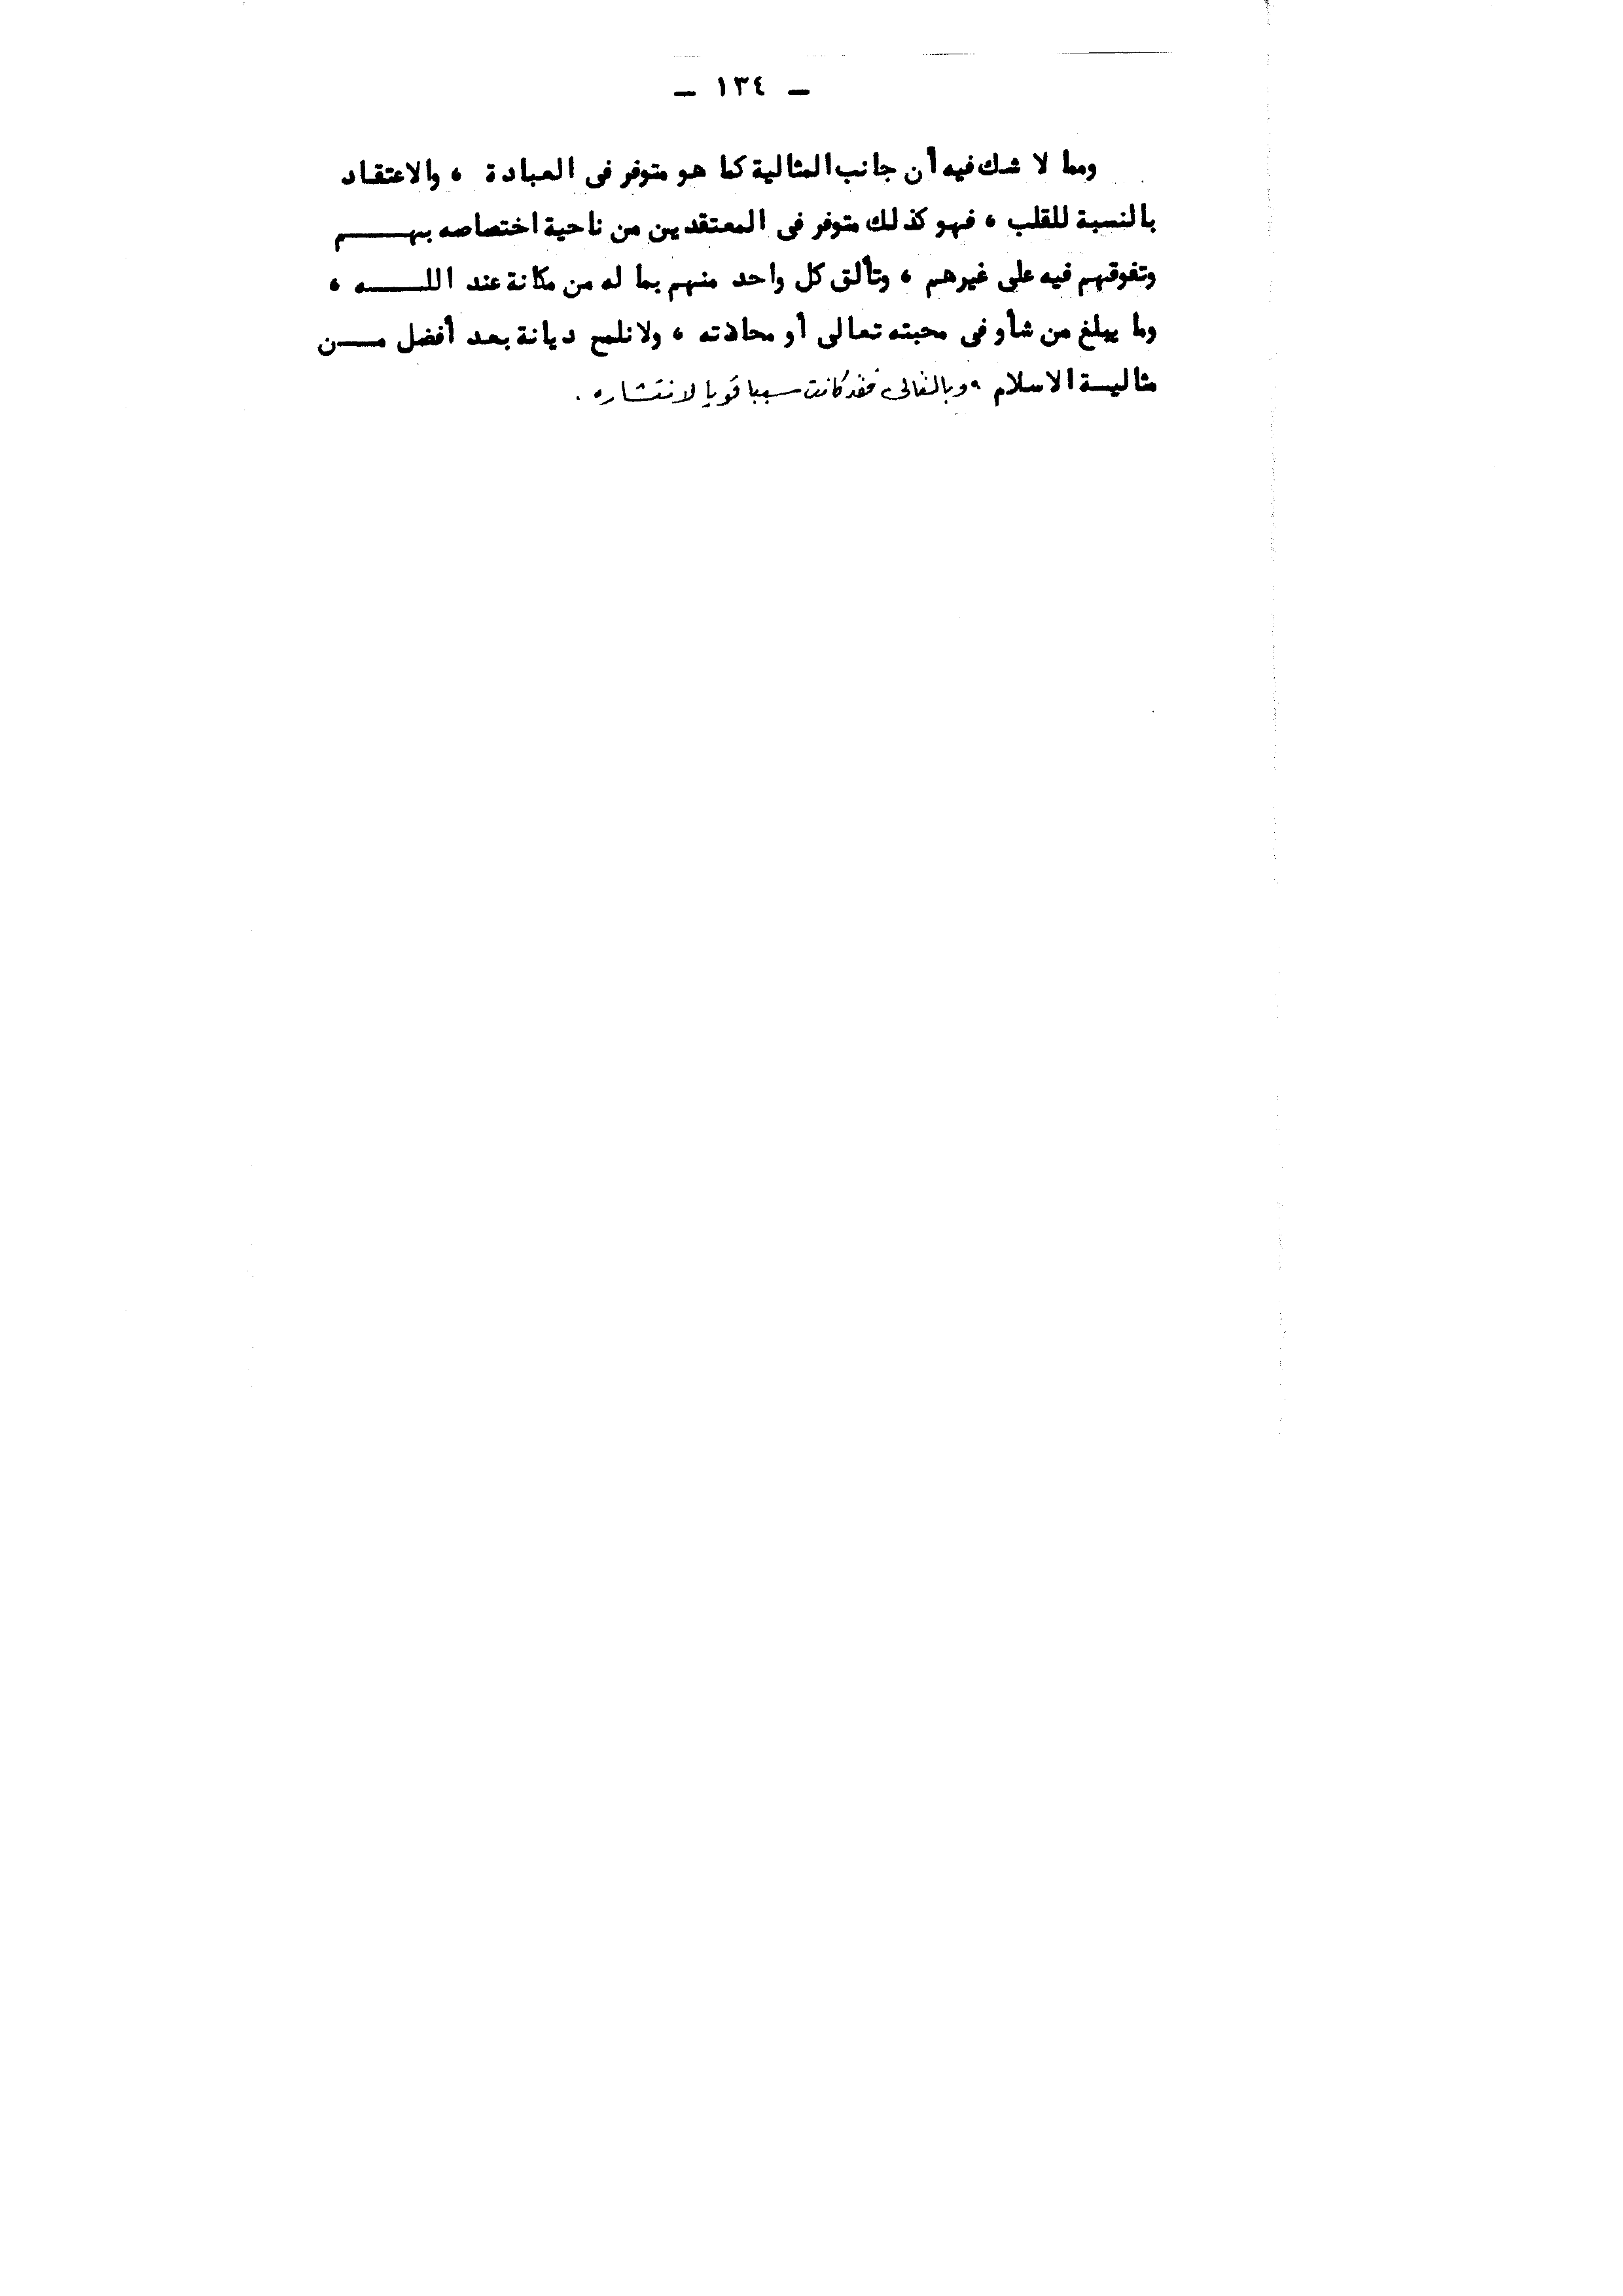 — ١٣٤ —
ومما لا شك فيه أن جانب المثالية كما هو متوفر فى العبادة ، والاعتقاد
بالنسبة للقلب ، فهو كذلك متوفر فى المعتقدين من ناحية اختصاصه بهم
وتفوقهم فيه على غيرهم ، وتألق كل واحد منهم بما له من مكانة عند الله ،
وما يبلغ من شأو فى محبته تعالى أو محاذته ، ولانلمح ديانة بعد أفضل من
مثالية الاسلام ، وبالتالى فقد كانت سببا قويا لانتشاره .